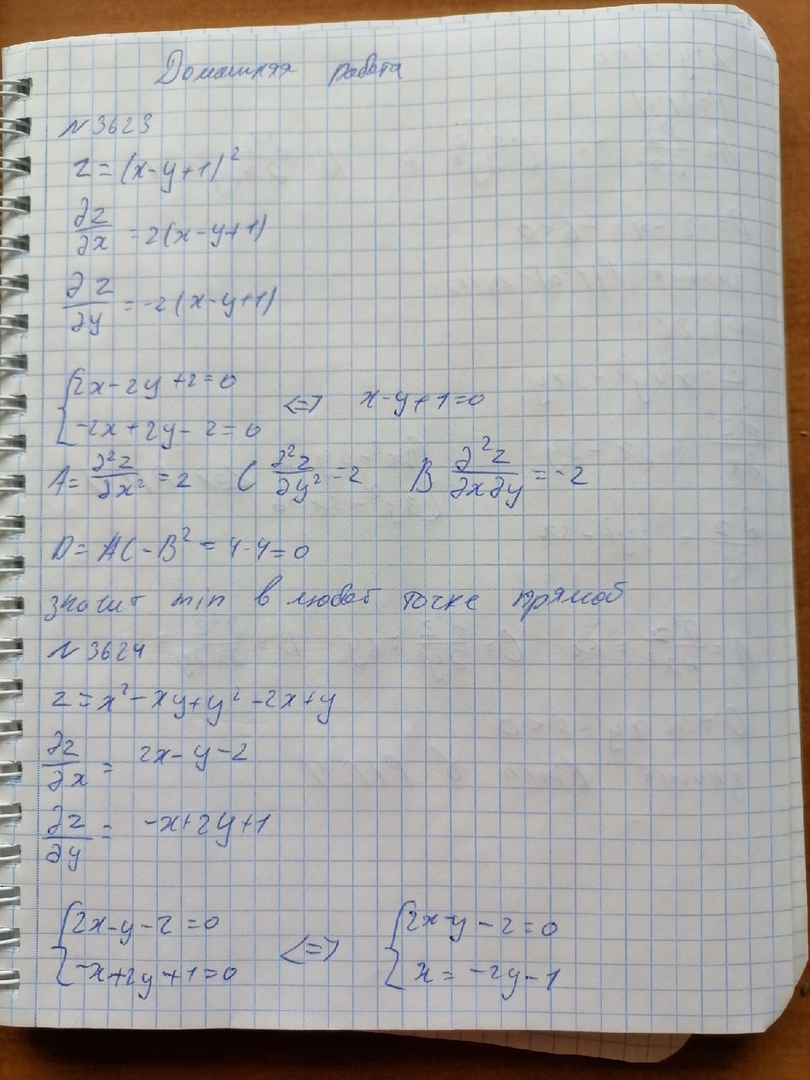 Домашняя работа
N 3623
z = (x-y+1)²
∂z/∂x = 2(x-y+1)
∂z/∂y = -2(x-y+1)
{2x-2y+2=0
{-2x+2y-2=0 <=> x-y+1=0
A= ∂²z/∂x² = 2 C ∂²z/∂y² = 2 B ∂²z/∂x∂y = -2
D = AC - B² = 4-4=0
значит min в любой точке прямой
N 3624
z = x² - xy + y² - 2x + y
∂z/∂x = 2x - y - 2
∂z/∂y = -x+2y+1
{2x-y-2=0 <=> {2x-y-2=0
{-x+2y+1=0 {x = -2y-1